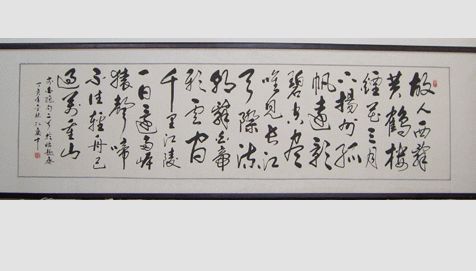 故人西辭
黄鶴樓
煙花三月
下揚州孤
帆遠影
碧空尽
唯見長江
天際流
朝辭白帝
彩雲間
千里江陵
一日還兩岸
猿聲啼
不住輕舟已
過萬重山
李白絕句二首
丁亥年